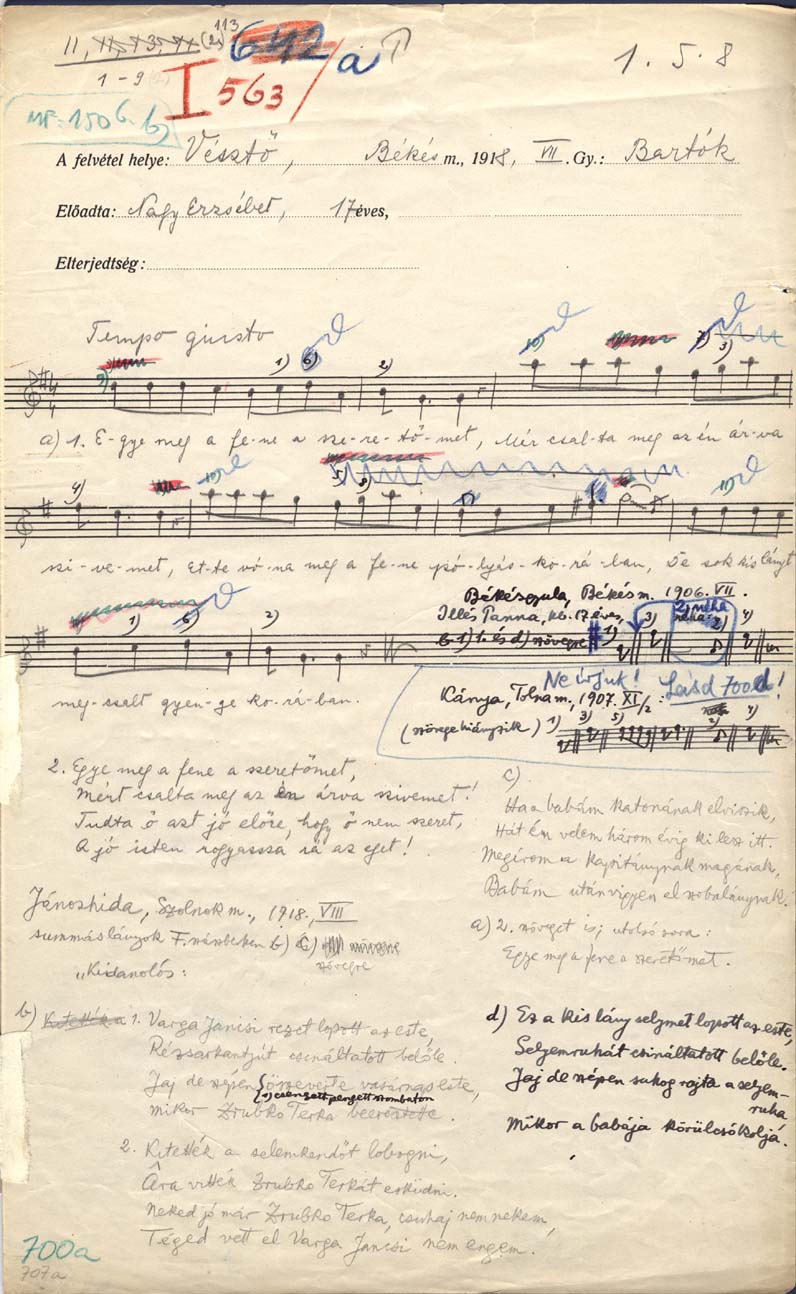 113
642 a
1 - 9
I 563
1 . 5 . 8
MF= 1506. b)
A felvétel helye: Vésztő, Békés m., 1918, VII. Gy.: Bartók
Előadta: Nagy Erzsébet, 17 éves,
Elterjedtség:
Tempo giusto
1) 6) 2) 10) 7) 3)
a) 1. E-gye meg a fe-ne a sze-re-tő-met, Mér csal-ta meg az én ár-va
4) 10) 5) 11)
szi-ve-met, Et-te vó-na meg a fe-ne pó-lyás-ko-rá-ban, De sok kis lányt
Békésgyula, Békés m. 1906. VII.
Illés Panna, kb. 17 éves,
b. 1) 1. és d) szövegre
1) 3) 2) néha 4)
1) 6) 2)
meg-csalt gyen-ge ko-rá-ban.
Ne írjuk! Lásd 700d!
Kánya, Tolna m., 1907. XI/2:
(szövege hiányzik) 1) 3) 5) 2) 4)
2. Egye meg a fene a szeretőmet,
Mért csalta meg az én árva szivemet!
Tudta ő azt jó előre, hogy ő nem szeret,
A jó isten rogyassza rá az eget!
c)
Ha a babám katonának elviszik,
Hát én velem három évig ki lesz itt.
Megírom a kapitánynak magának,
Babám után vigyen el szobalánynak.
a) 2. szöveget is; utolsó sora:
Egye meg a fene a szeretőmet.
Jánoshida, Szolnok m., 1918., VIII
summáslányok F. nászbeken b) c)
szövegre
"Kidanolós:
b) Kitették a 1. Varga Jancsi rezet lopott az este,
Rézsarkantyút csináltatott belőle.
Jaj de szépen összeverte vasárnap este,
1) csengett pengett szombaton
Mikor Zrubko Terka beeresztette.
2. Kitették a selemkendőt lobogni,
Ara vitték Zrubko Terkát esküdni.
Neked jó már Zrubko Terka, csuhaj nem nekem,
Téged vett el Varga Jancsi nem engem.
d) Ez a kis lány selymet lopott az este,
Selyemruhát csináltatott belőle.
Jaj de szépen suhog rajta a selyem-
ruha
Mikor a babája körülcsókoljá.
700a
707a